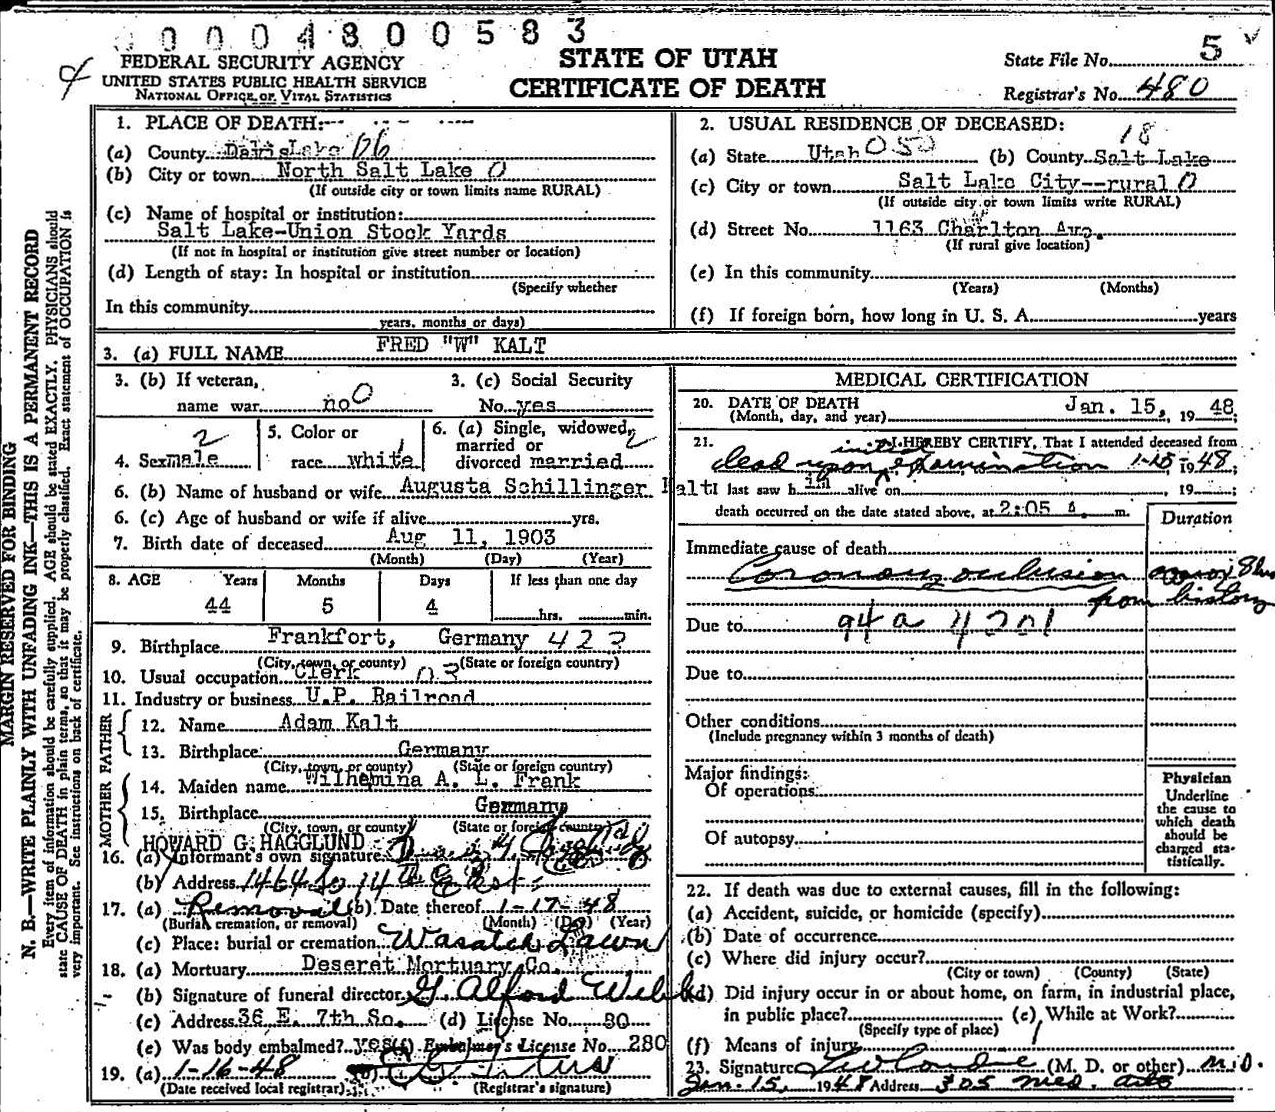 00004800583
FEDERAL SECURITY AGENCY
UNITED STATES PUBLIC HEALTH SERVICE
NATIONAL OFFICE OF VITAL STATISTICS
STATE OF UTAH
CERTIFICATE OF DEATH
State File No. 5
Registrar's No. 480
MARGIN RESERVED FOR BINDING
N. B.—WRITE PLAINLY WITH UNFADING INK—THIS IS A PERMANENT RECORD
Every item of information should be carefully supplied. AGE should be stated EXACTLY. PHYSICIANS should
state CAUSE OF DEATH in plain terms, so that it may be properly classified. Exact statement of OCCUPATION is
very important. See instructions on back of certificate.
1. PLACE OF DEATH:
(a) County 06
(b) City or town North Salt Lake 0
(If outside city or town limits name RURAL)
(c) Name of hospital or institution:
Salt Lake-Union Stock Yards
(If not in hospital or institution give street number or location)
(d) Length of stay: In hospital or institution
(Specify whether
In this community
years, months or days)
2. USUAL RESIDENCE OF DECEASED:
18
(a) State Utah 050 (b) County Salt Lake
(c) City or town Salt Lake City--rural 0
(If outside city or town limits write RURAL)
(d) Street No. 1163 Charlton Ave.
(If rural give location)
(e) In this community
(Years) (Months)
(f) If foreign born, how long in U. S. A. years
3. (a) FULL NAME FRED "W" KALT
3. (b) If veteran,
name war no 0
3. (c) Social Security
No. yes
4. Sex male 2
5. Color or
race white 1
6. (a) Single, widowed, 2
married or
divorced married
6. (b) Name of husband or wife Augusta Schillinger Kalt
6. (c) Age of husband or wife if alive yrs.
7. Birth date of deceased Aug 11, 1903
(Month) (Day) (Year)
8. AGE Years Months Days If less than one day
44 5 4 hrs. min.
9. Birthplace Frankfort, Germany 423
(City, town, or county) (State or foreign country)
10. Usual occupation Clerk 03
11. Industry or business U.P. Railroad
FATHER
12. Name Adam Kalt
13. Birthplace Germany
(City, town, or county) (State or foreign country)
MOTHER
14. Maiden name Wilhemina A. L. Frank
15. Birthplace Germany
(City, town, or county) (State or foreign country)
HOWARD G. HAGGLUND
16. (a) Informant's own signature
(b) Address 1464 So 14th East
17. (a) Removal (b) Date thereof 1-17-48
(Burial, cremation, or removal) (Month) (Day) (Year)
(c) Place: burial or cremation Wasatch Lawn
18. (a) Mortuary Deseret Mortuary Co.
(b) Signature of funeral director
(c) Address 36 E. 7th So. (d) License No. 80
(e) Was body embalmed? yes (f) Embalmer's License No. 280
19. (a) 1-16-48
(Date received local registrar) (Registrar's signature)
MEDICAL CERTIFICATION
20. DATE OF DEATH Jan. 15, 1948;
(Month, day, and year)
21. I HEREBY CERTIFY, That I attended deceased from
dead upon initial examination 1-15 1948;
I last saw him alive on , 19 ;
death occurred on the date stated above, at 2:05 A. m.
Duration
Immediate cause of death
Coronary occlusion approx 8 hrs
from history
Due to 94a 4201
Due to
Other conditions
(Include pregnancy within 3 months of death)
Major findings:
Of operations
Of autopsy
Physician
Underline
the cause to
which death
should be
charged sta-
tistically.
22. If death was due to external causes, fill in the following:
(a) Accident, suicide, or homicide (specify)
(b) Date of occurrence
(c) Where did injury occur?
(City or town) (County) (State)
(d) Did injury occur in or about home, on farm, in industrial place,
in public place? (e) While at Work?
(Specify type of place)
(f) Means of injury
23. Signature (M. D. or other) M.D.
Jan. 15, 1948 Address 305 Med. Arts